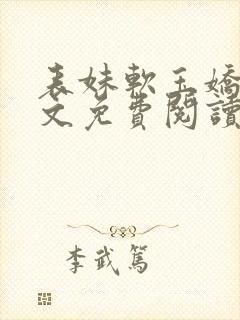 表妹軟玉嬌
文免費閱讀
李武篤